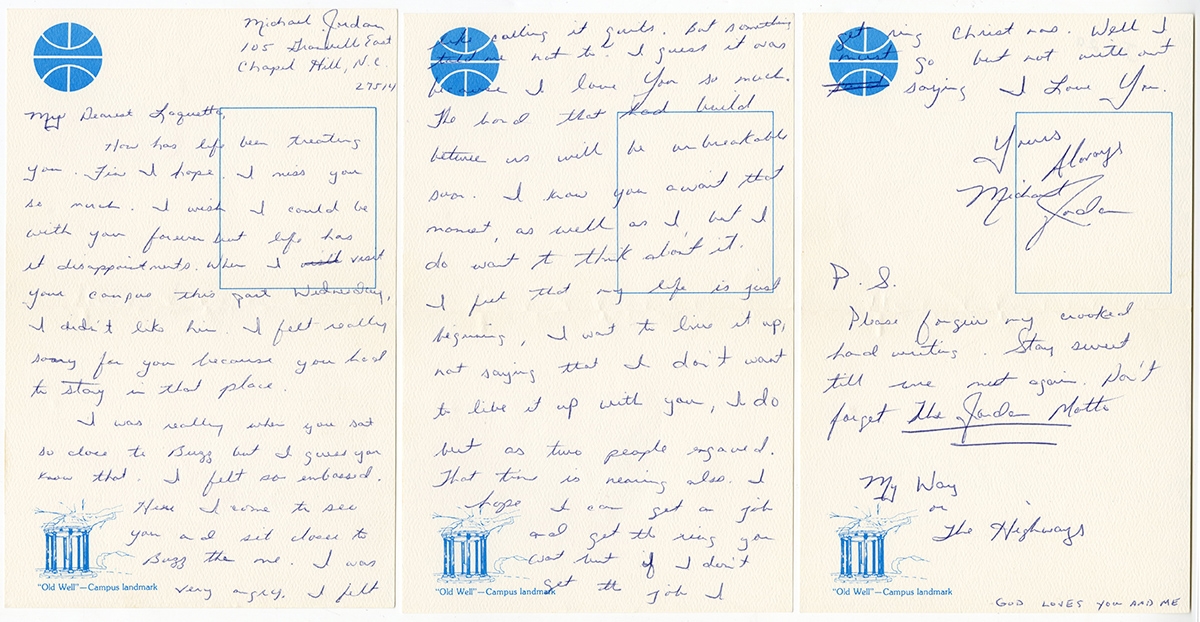 Michael Jordan
105 Granville East
Chapel Hill, N.C.
27514
My Dearest Laquetta,
How has life been treating
you. Fine I hope. I miss you
so much. I wish I could be
with you forever but life has
it disappointments. When I visit
your campus this past Wednesday,
I didn't like him. I felt really
sorry for you because you had
to stay in that place.
I was really when you sat
so close to Buzz but I guess you
know that. I felt so embassed.
Here I come to see
you and sit closer to
Buzz the me. I was
very angry. I felt
"Old Well"—Campus landmark
like calling it quits. But something
told me not to. I guess it was
because I love you so much.
The bond that had build
between us will be unbreakable
soon. I know you await that
moment, as well as I, but I
do want to think about it.
I feel that my life is just
beginning, I want to live it up,
not saying that I don't want
to live it up with you, I do
but as two people engaged.
That time is nearing also. I
hope I can get a job
and get the ring you
want but if I don't
get the job I
"Old Well"—Campus landmark
get ring Christmas. Well I
must go but not with out
saying I Love You.
Yours
Always
Michael
Jordan
P.S.
Please forgive my crooked
hand writing. Stay sweet
till we meet again. Don't
forget The Jordan Motto
My Way
or
The Highways
"Old Well"—Campus landmark
GOD LOVES YOU AND ME